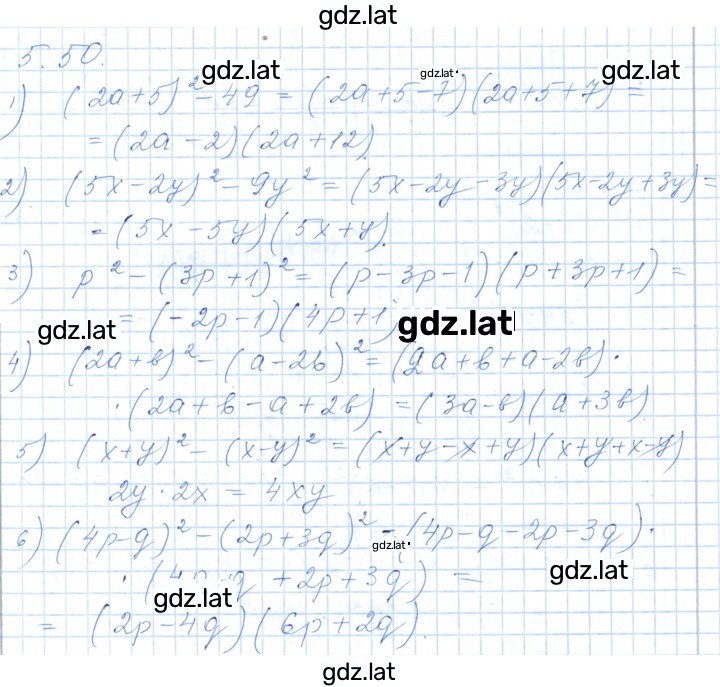 gdz.lat
5.50.
gdz.lat gdz.lat gdz.lat
1) (2a+5)² - 49 = (2a+5-7)(2a+5+7) =
= (2a-2)(2a+12).
2) (5x-2y)² - 9y² = (5x-2y-3y)(5x-2y+3y) =
= (5x-5y)(5x+y).
3) p² - (3p+1)² = (p-3p-1)(p+3p+1) =
= (-2p-1)(4p+1)
gdz.lat gdz.lat
4) (2a+b)² - (a-2b)² = (2a+b+a-2b)·
·(2a+b-a+2b) = (3a-b)(a+3b)
5) (x+y)² - (x-y)² = (x+y-x+y)(x+y+x-y)
2y·2x = 4xy
6) (4p-q)² - (2p+3q)² = (4p-q-2p-3q)·
gdz.lat
·(4p-q+2p+3q) =
gdz.lat gdz.lat
= (2p-4q)(6p+2q).
gdz.lat